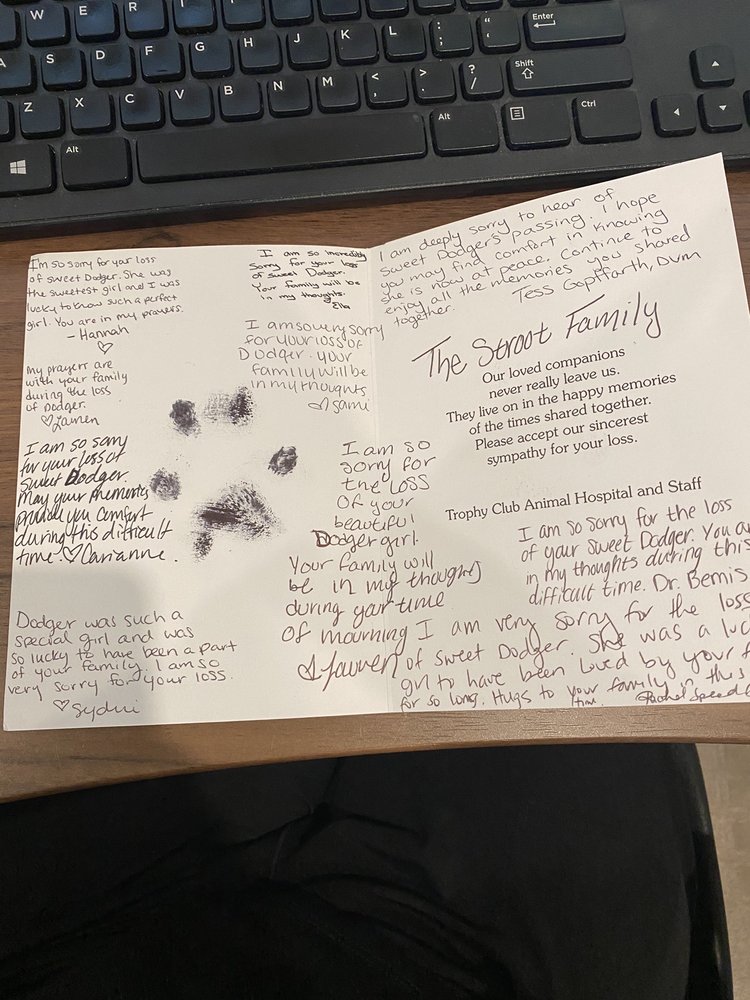 W
E
R
T
Enter
A
S
D
F
G
H
J
K
L
:
;
"
Shift
Z
X
C
V
B
N
M
<
,
>
.
?
/
Alt
Alt
Ctrl
Im so sorry for your loss
of sweet Dodger. She was
the sweetest girl and I was
lucky to know such a perfect
girl. You are in my prayers.
- Hannah
♡
My prayers are
with your family
during the loss
of Dodger.
♡ Lauren
I am so sorry
for your loss of
Sweet Dodger
may your memories
provide you comfort
during this difficult
time. ♡ Carianne.
Dodger was such a
special girl and was
so lucky to have been a part
of your family. I am so
very sorry for your loss.
♡ Sydni
I am so incredibly
Sorry for your loss
of sweet Dodger.
Your family will be
in my thoughts.
Ella
I am so very sorry
for your loss of
Dodger. your
family will be
in my thoughts
♡ Sami
I am so
sorry for
the loss
of your
beautiful
Dodger girl.
Your family will
be in my thoughts
during your time
of mourning
Lauren
I am deeply sorry to hear of
Sweet Dodgers passing. I hope
you may find comfort in knowing
she is now at peace. Continue to
enjoy all the memories you shared
together.
Tess Gopffarth, DVM
The Stroot Family
Our loved companions
never really leave us.
They live on in the happy memories
of the times shared together.
Please accept our sincerest
sympathy for your loss.
Trophy Club Animal Hospital and Staff
I am so sorry for the loss
of your sweet Dodger. You a
in my thoughts during this
difficult time. Dr. Bemis
I am very sorry for the loss
of sweet Dodger. She was a luc
girl to have been loved by your f
for so long. Hugs to your family in this
time. Rachel Speed